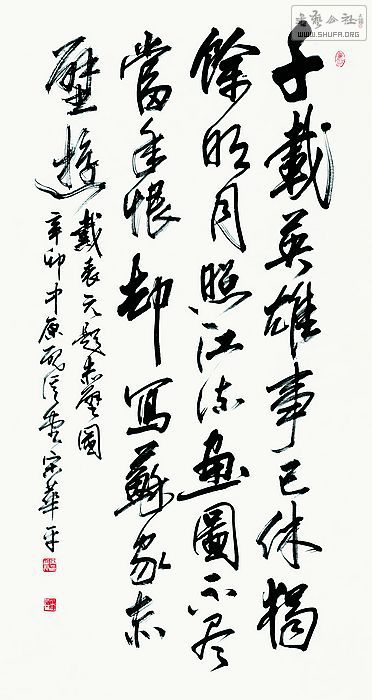 千載英雄事已休獨
餘明月照江流畫圖不尽
當年恨却寫蘇家赤
壁遊
戴表元題赤壁圖
辛卯中原宋華平
书艺公社
WWW.SHUFA.ORG